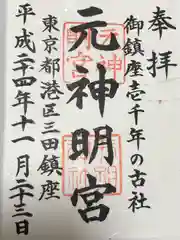 奉拝
御鎮座壱千年の古社
元神明宮
東京都港区三田鎮座
平成二十四年十一月二十三日
元神
明宮